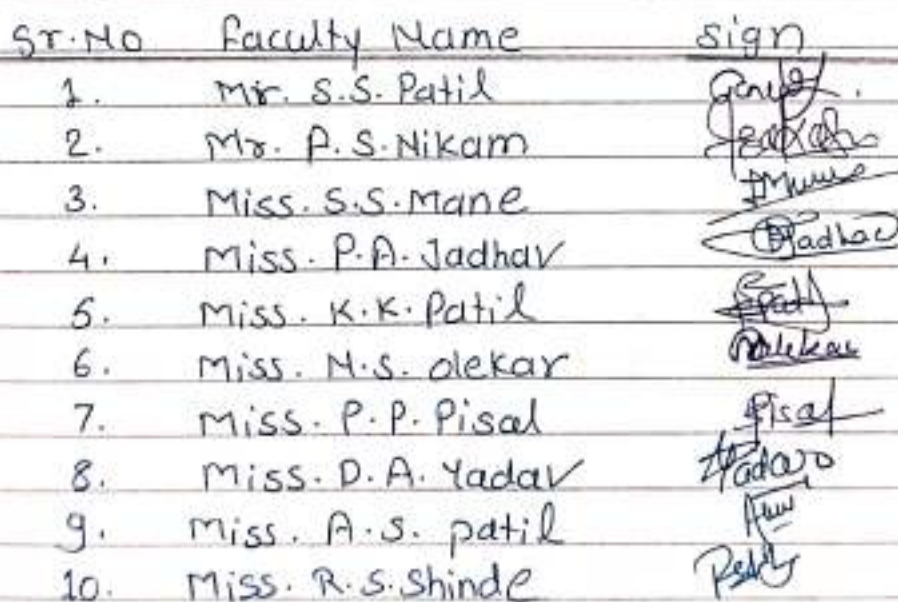 Sr.No Faculty Name sign
1. Mr. S.S. Patil
2. Mr. P.S. Nikam
3. Miss. S.S. Mane
4. Miss. P.A. Jadhav Jadhav
5. Miss. K.K. Patil
6. Miss. N.S. olekar
7. Miss. P.P. Pisal Pisal
8. Miss. D.A. Yadav
9. Miss. A.S. patil
10. Miss. R.S. Shinde